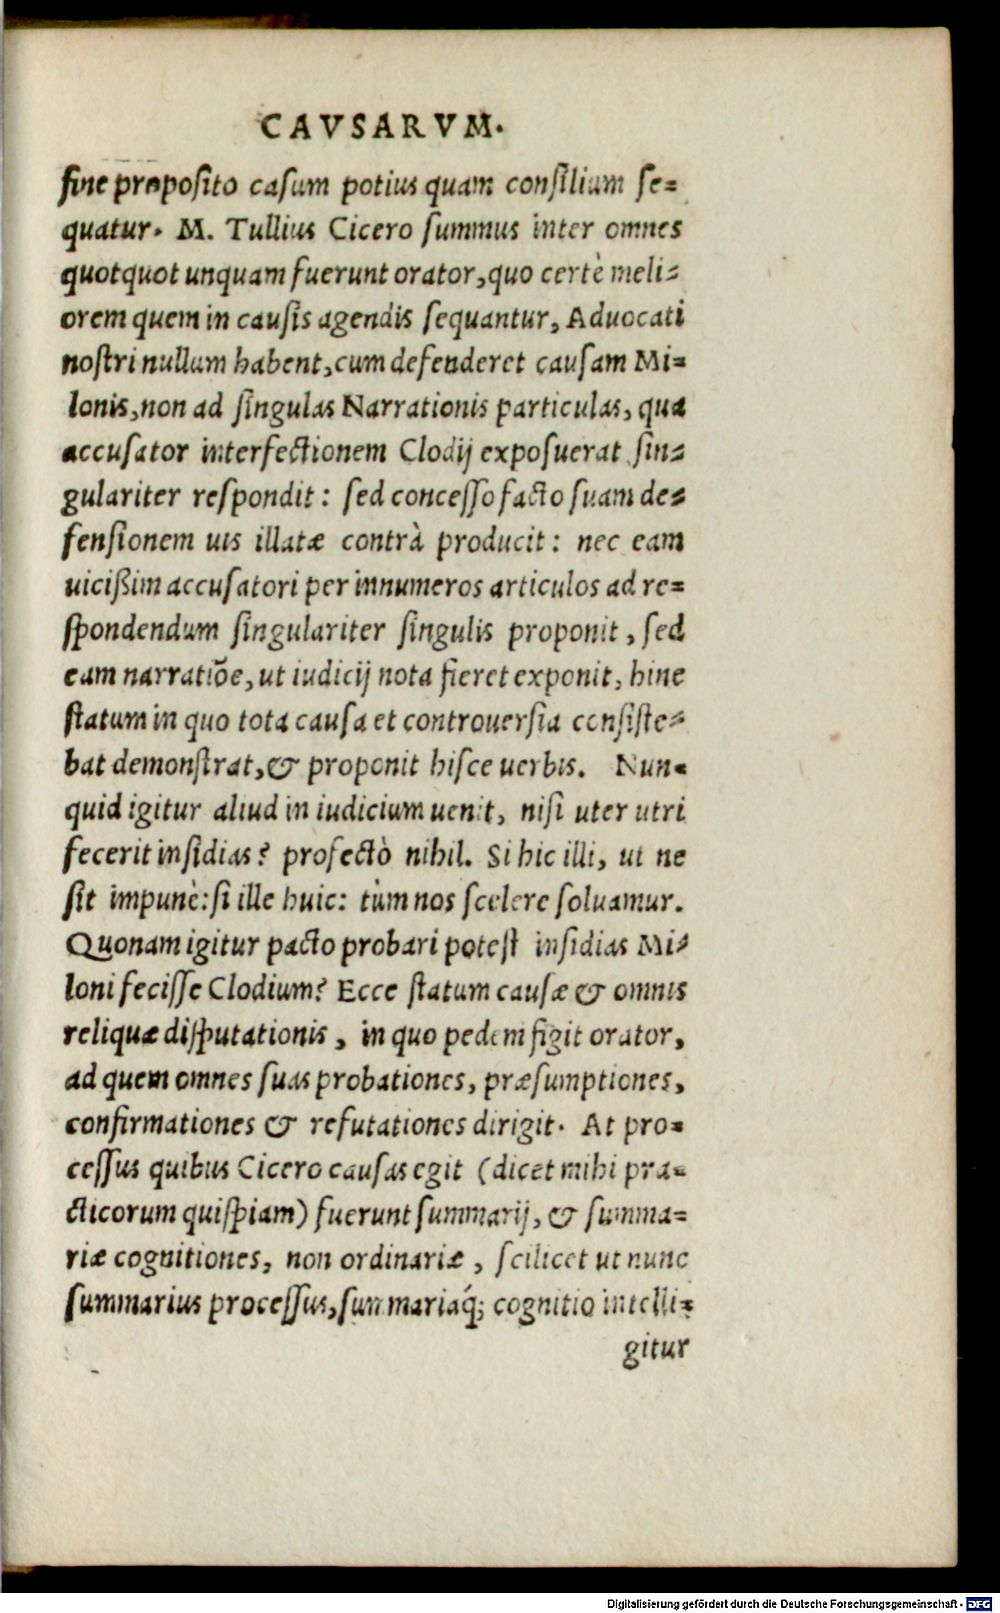 CAVSARVM.
sine proposito casum potius quam consilium se=
quatur. M. Tullius Cicero summus inter omnes
quotquot unquam fuerunt orator, quo certè meli=
orem quem in causis agendis sequantur, Aduocati
nostri nullum habent, cum defenderet causam Mi=
lonis, non ad singulas Narrationis particulas, qua
accusator interfectionem Clodij exposuerat sin=
gulariter respondit: sed concesso facto suam de=
fensionem uis illatæ contrà producit: nec eam
uicißim accusatori per innumeros articulos ad re=
spondendum singulariter singulis proponit, sed
eam narratiōe, ut iudicij nota fieret exponit, hinc
statum in quo tota causa et controuersia consiste=
bat demonstrat, & proponit hisce uerbis. Nun=
quid igitur aliud in iudicium uenit, nisi uter utri
fecerit insidias? profectò nihil. Si hic illi, ut ne
sit impunè: si ille huic: tùm nos scelere soluamur.
Quonam igitur pacto probari potest insidias Mi=
loni fecisse Clodium? Ecce statum causæ & omnis
reliquæ disputationis, in quo pedem figit orator,
ad quem omnes suas probationes, præsumptiones,
confirmationes & refutationes dirigit. At pro=
cessus quibus Cicero causas egit (dicet mihi pra=
cticorum quispiam) fuerunt summarij, & summa=
riæ cognitiones, non ordinariæ, scilicet ut nunc
summarius processus, summariaq́; cognitio intelli=
gitur
Digitalisierung gefördert durch die Deutsche Forschungsgemeinschaft - DFG